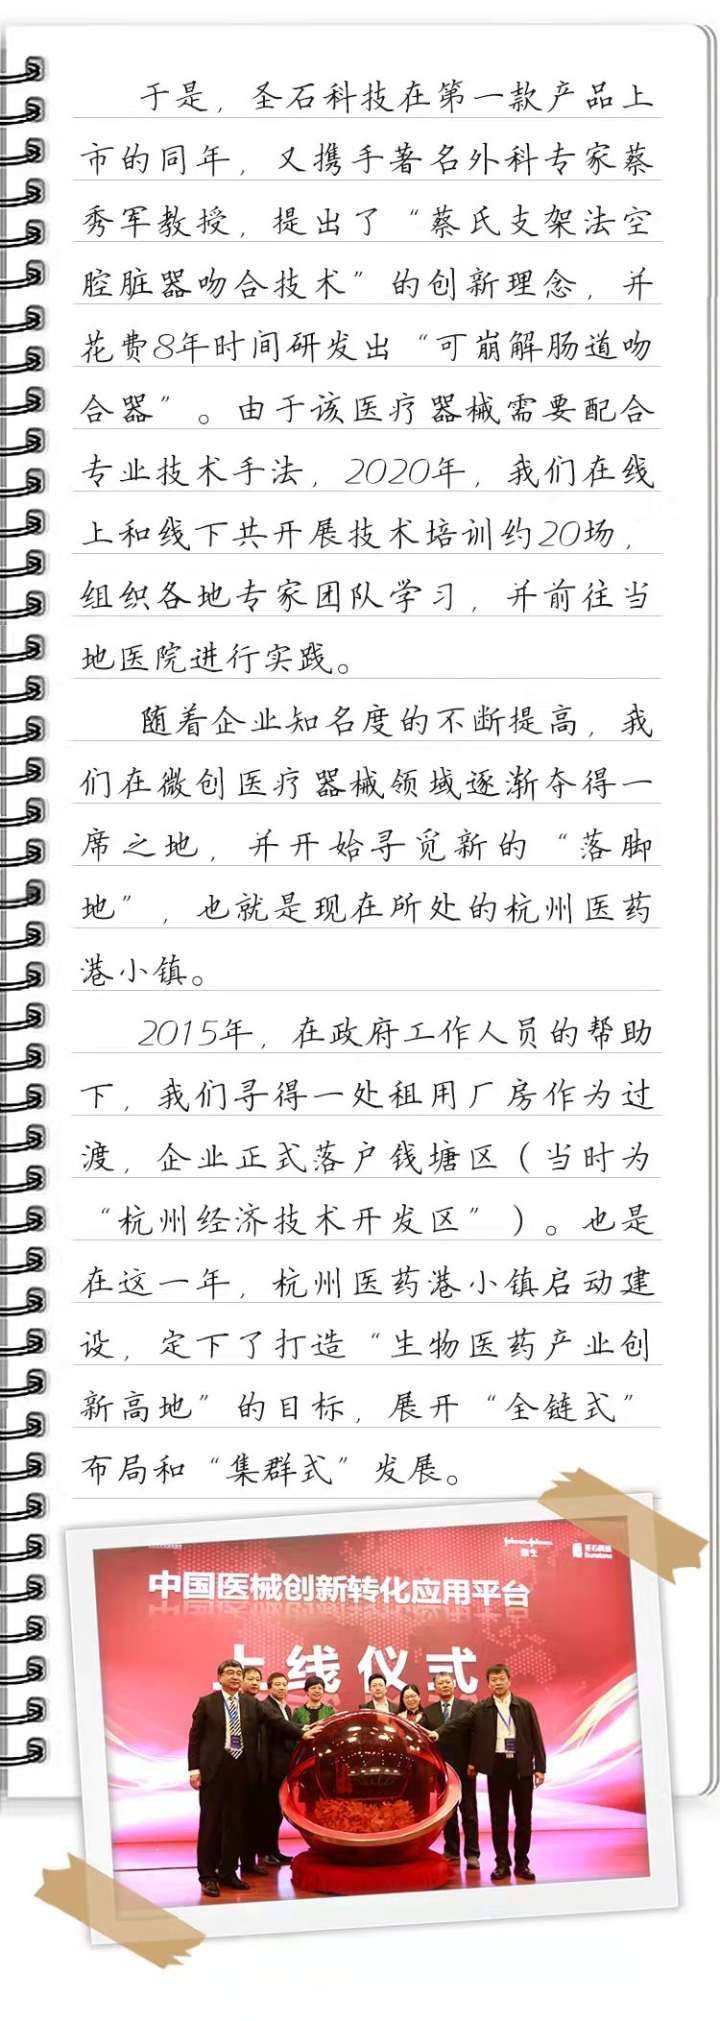 于是，圣石科技在第一款产品上
市的同年，又携手著名外科专家蔡
秀军教授，提出了“蔡氏支架法空
腔脏器吻合技术”的创新理念，并
花费8年时间研发出“可崩解肠道吻
合器”。由于该医疗器械需要配合
专业技术手法，2020年，我们在线
上和线下共开展技术培训约20场，
组织各地专家团队学习，并前往当
地医院进行实践。
随着企业知名度的不断提高，我
们在微创医疗器械领域逐渐夺得一
席之地，并开始寻觅新的“落脚
地”，也就是现在所处的杭州医药
港小镇。
2015年，在政府工作人员的帮助
下，我们寻得一处租用厂房作为过
渡，企业正式落户钱塘区（当时为
“杭州经济技术开发区”）。也是
在这一年，杭州医药港小镇启动建
设，定下了打造“生物医药产业创
新高地”的目标，展开“全链式”
布局和“集群式”发展。
Johnson&Johnson
强生
圣石科技
中国医械创新转化应用平台
上线仪式